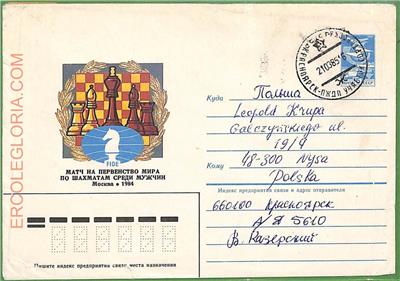 EROOLEGLORIA.COM
21 03 85
Куда Польша
Leopold Krupa
Gałczyńskiego ul.
19/4
Кому 48-300 Nysa
Polska
FIDE
МАТЧ НА ПЕРВЕНСТВО МИРА
ПО ШАХМАТАМ СРЕДИ МУЖЧИН
Москва • 1984
Индекс предприятия связи и адрес отправителя
660100 Красноярск
А/Я 5610
В. Казерский
Пишите индекс предприятия связи места назначения